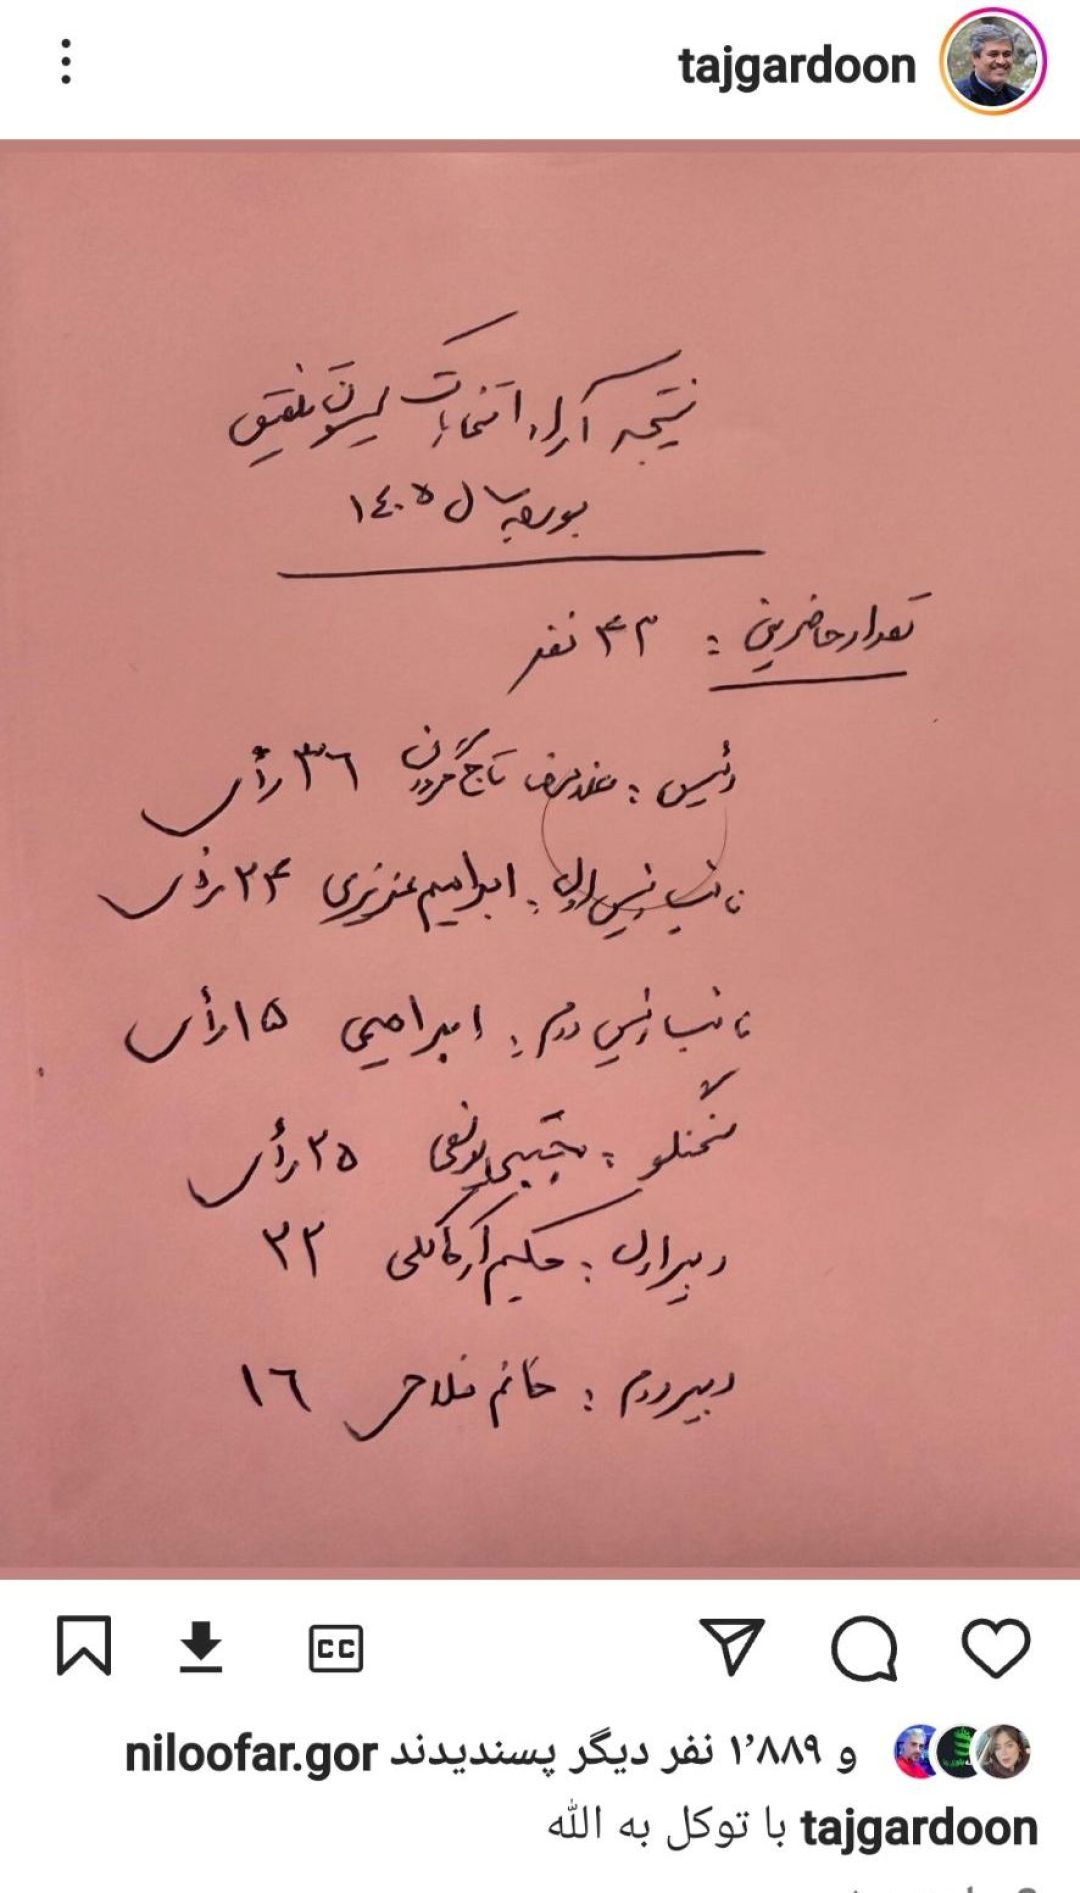 tajgardoon
نتیجه آراء انتخابات کمیسیون تلفیق
بودجه سال ۱٤۰۵
تعداد حاضرین : ۴۲ نفر
رئیس : غلامرضا تاجگردون ۳٦ رأی
نائب رئیس اول : ابراهیم عزیزی ۲۴ رأی
نائب رئیس دوم : ابراهیمی ۱۵ رأی
سخنگو : مجتبی یوسفی ۲۵ رأی
دبیر اول : حکیم آرکاکلی ۲۲
دبیر دوم : خانم فلاحی ۱٦
CC
niloofar.gor و ۱٬۸۸۹ نفر دیگر پسندیدند
tajgardoon با توکل به الله